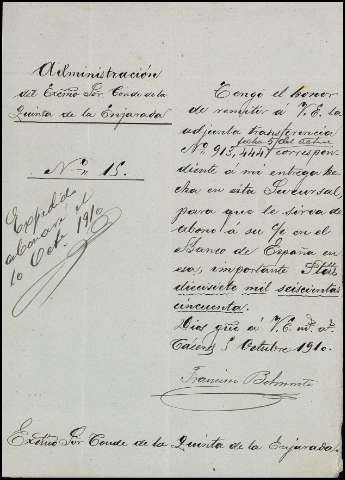 Administración
del Excmo Sor Conde de la
Quinta de la Enjarada
Nº 15.
Expedido
abonaré el
10 Octe. 1910
Tengo el honor
de remitir á V.E. la
adjunta transferencia
fecha 5 del actual
Nº 913,444 correspon-
diente á mi entrega he-
cha en esta Sucursal,
para que le sirva de
abono á su % en el
Banco de España en
esa, importante Ptas
diecisiete mil seiscientas
cincuenta.
Dios gue á V.E. ms. as.
Cáceres 5 Octubre 1910.
Francisco
Excmo Sor Conde de la Quinta de la Enjarada.